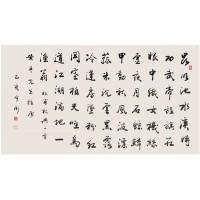 昆明池水漢時
功武帝旌旗在
眼中織女機絲
虛夜月石鯨鱗
甲動秋風波漂
菰米沉雲黑露
冷蓮房墜粉
紅關塞極天唯鳥
道江湖滿地一
漁翁 杜甫秋興一首
先生